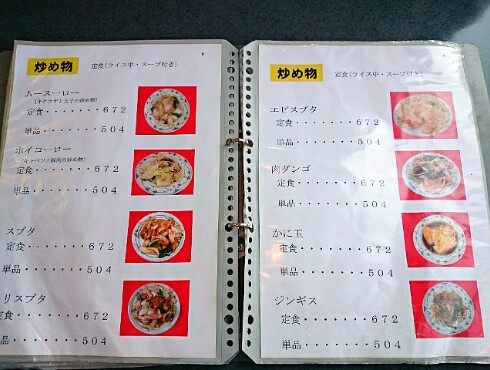 炒め物 定食(ライス中・スープ付き)
ムースーロー
(キクラゲと玉子の炒め物)
定食・・・・・・・672
単品・・・・・・・504
ホイコーロー
(キャベツと豚肉の炒め物)
定食・・・・・・・672
単品・・・・・・・504
スブタ
定食・・・・・・・672
単品・・・・・・・504
リスブタ
定食・・・・・・・672
単品・・・・・・・504
炒め物 定食(ライス中・スープ付き)
エビスブタ
定食・・・・・・・672
単品・・・・・・・504
肉ダンゴ
定食・・・・・・・672
単品・・・・・・・504
かに玉
定食・・・・・・・672
単品・・・・・・・504
ジンギス
定食・・・・・・・672
単品・・・・・・・504